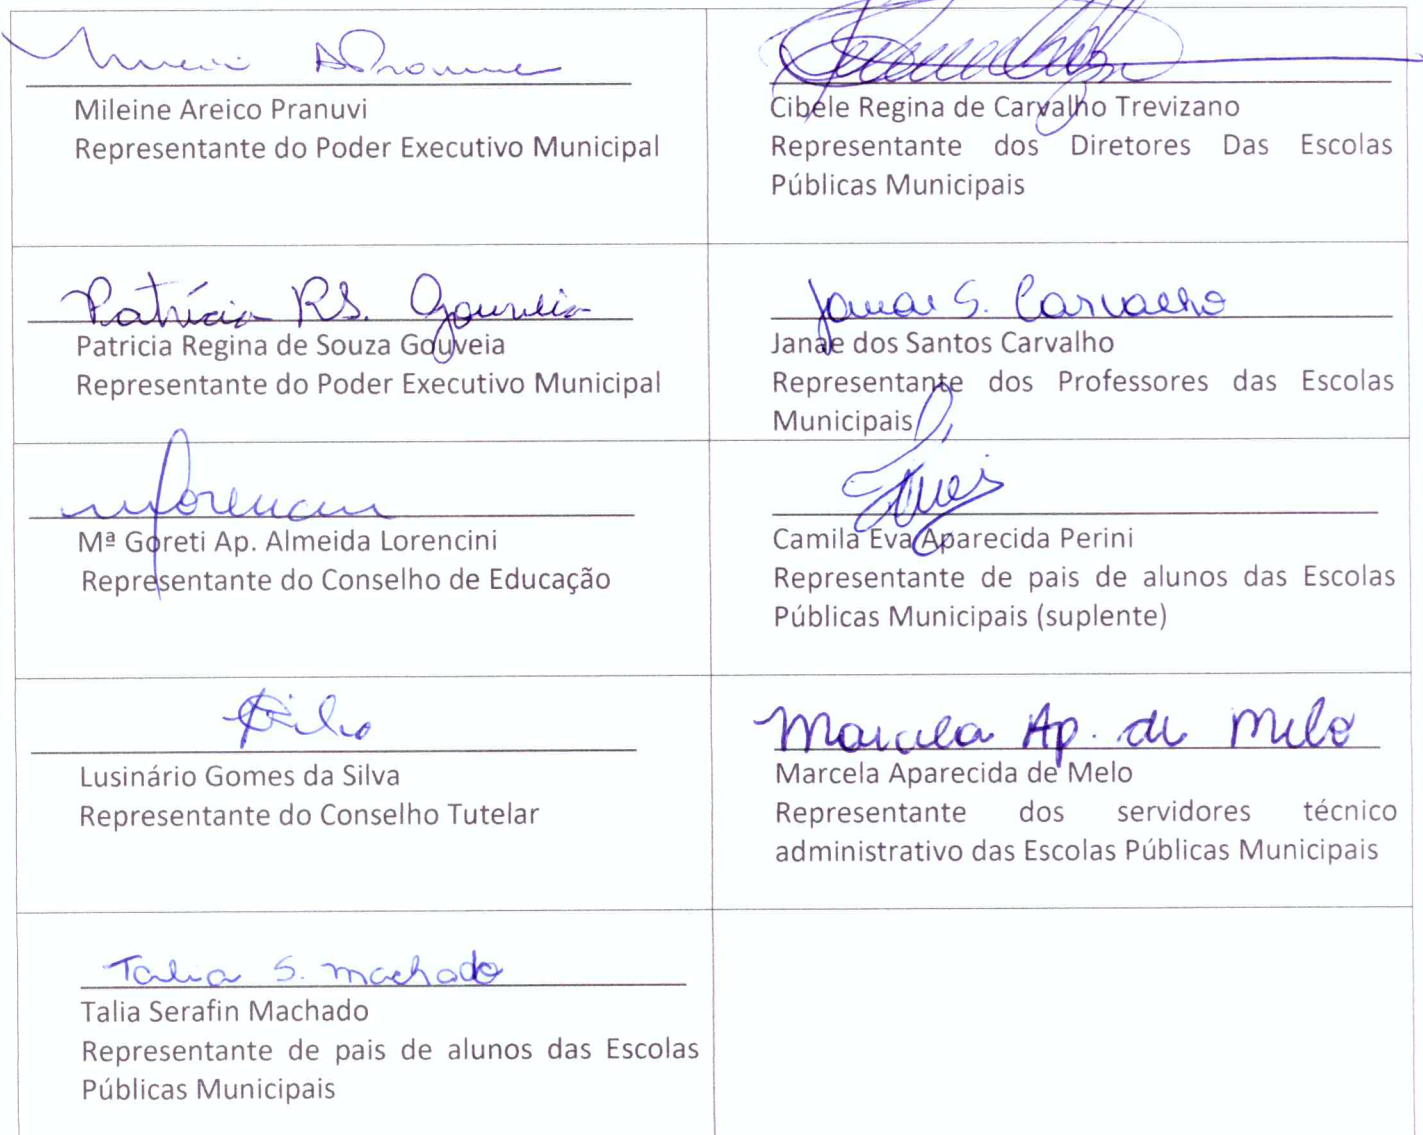 Mileine Areico Pranuvi
Representante do Poder Executivo Municipal
Cibele Regina de Carvalho Trevizano
Representante dos Diretores Das Escolas
Públicas Municipais
Patrícia RS. Gouveia
Patricia Regina de Souza Gouveia
Representante do Poder Executivo Municipal
Janae S. Carvalho
Janae dos Santos Carvalho
Representante dos Professores das Escolas
Municipais
Mª Goreti Ap. Almeida Lorencini
Representante do Conselho de Educação
Camila Eva Aparecida Perini
Representante de pais de alunos das Escolas
Públicas Municipais (suplente)
Lusinário Gomes da Silva
Representante do Conselho Tutelar
Marcela Ap. de Melo
Marcela Aparecida de Melo
Representante dos servidores técnico
administrativo das Escolas Públicas Municipais
Talia S. Machado
Talia Serafin Machado
Representante de pais de alunos das Escolas
Públicas Municipais